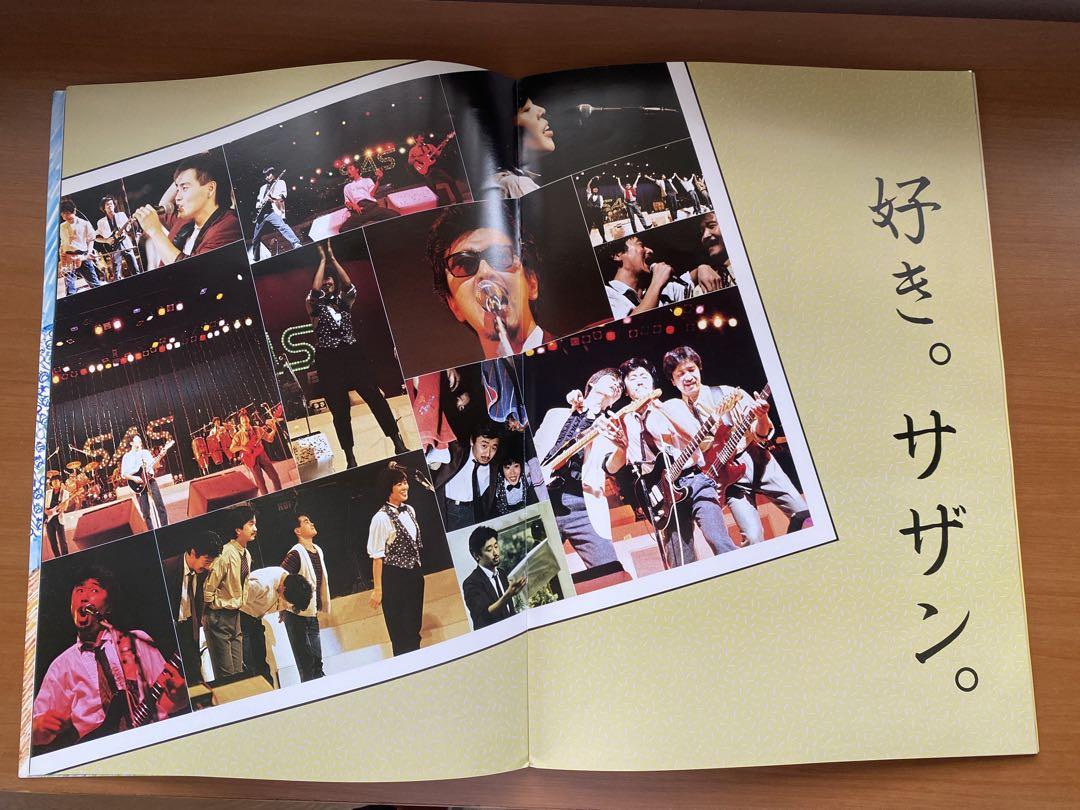 好き。サザン。
SAS
AS
SAS